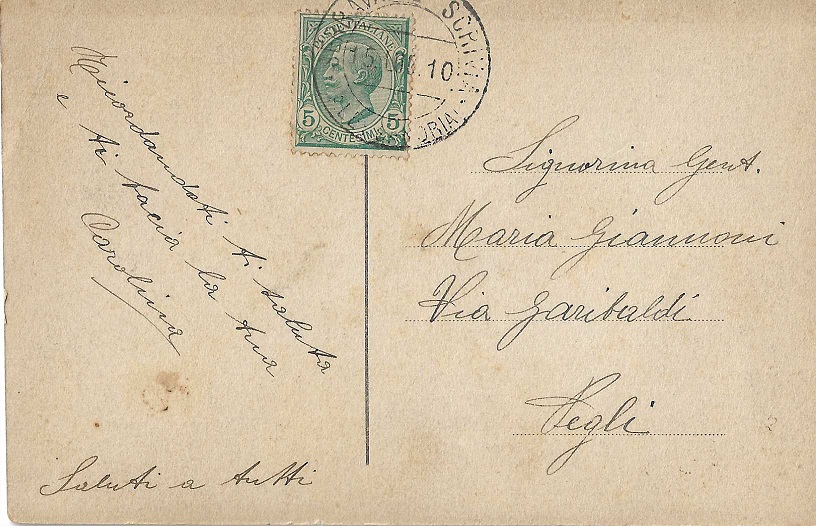 POSTE ITALIANE
5 5
CENTESIMI
SCRIVIA
.10
Ricordandoti ti saluta
e ti bacia la tua
Carolina
Saluti a tutti
Signorina Gent.
Maria Giannoni
Via Garibaldi
Pegli